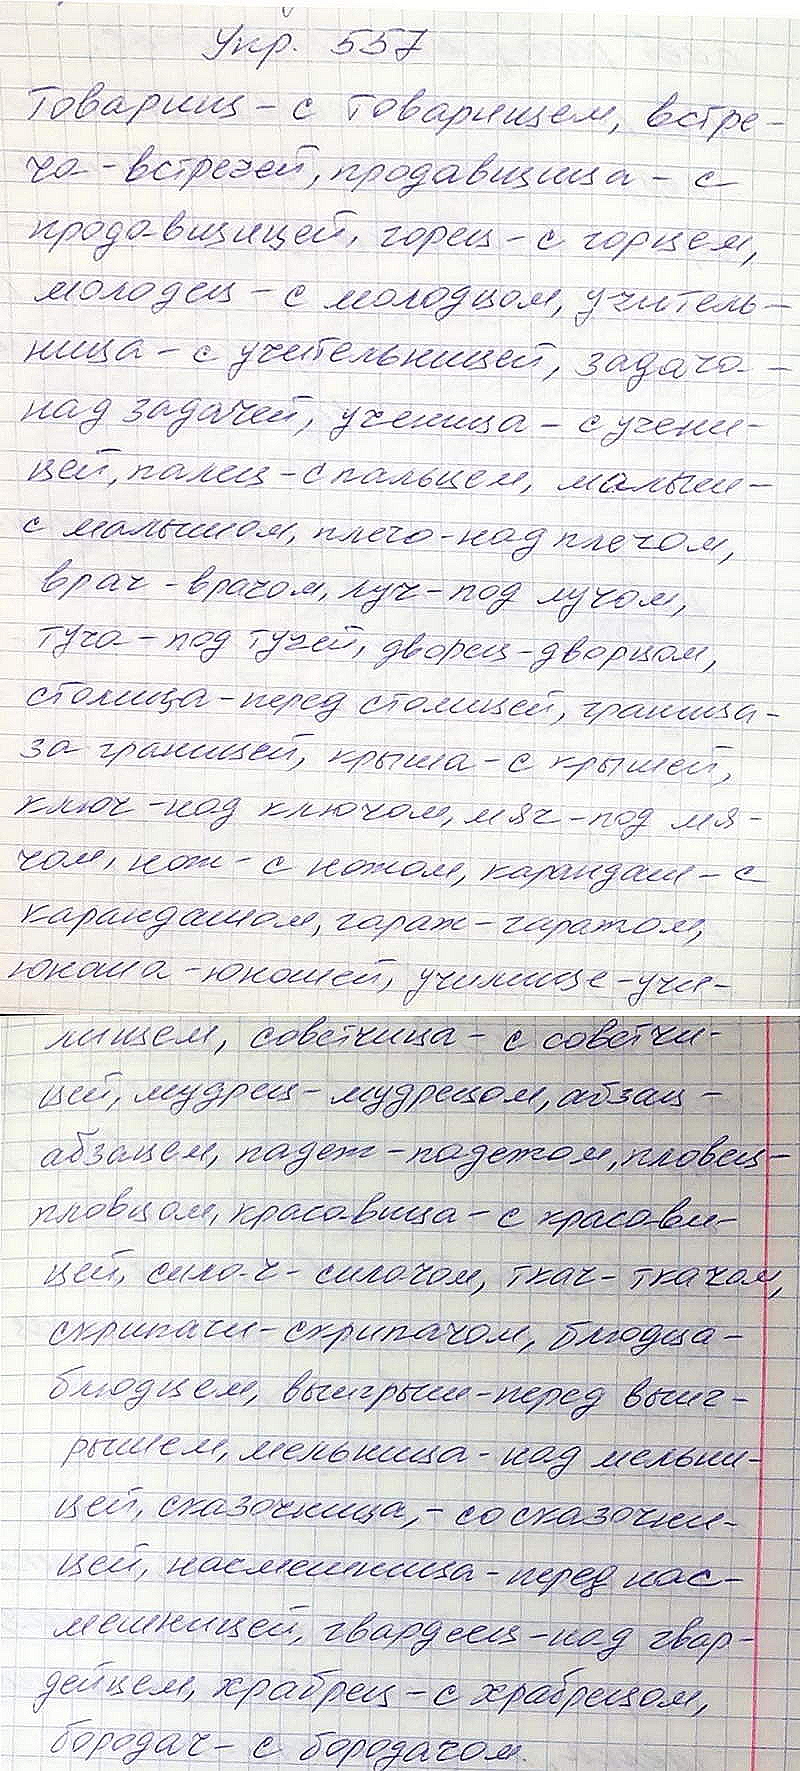 Укр. 557
Товарищ - с товарищем, встре-
ча - встречей, продавщица - с
продавщицей, горец - с горцем,
молодец - с молодцом, учитель-
ница - с учительницей, задача -
над задачей, ученица - с учени-
цей, палец - с пальцем, малыш -
с малышом, плечо - над плечом,
врач - врачом, луч - под лучом,
туча - под тучей, дворец - дворцом,
столица - перед столицей, граница -
за границей, крыша - с крышей,
ключ - над ключом, мяч - под мя-
чом, нож - с ножом, карандаш - с
карандашом, гараж - гаражом,
юноша - юношей, училище - учи-
лищем, советчица - с советчи-
цей, мудрец - мудрецом, абзац -
абзацем, падеж - падежом, пловец -
пловцом, красавица - с красави-
цей, силач - силачом, ткач - ткачом,
скрипачи - скрипачом, блюдца -
блюдцем, выигрыш - перед выиг-
рышем, мельница - над мельни-
цей, сказочница, - со сказочни-
цей, насмешница - перед нас-
мешницей, гвардеец - над гвар-
дейцем, храбрец - с храбрецом,
бородач - с бородачом.